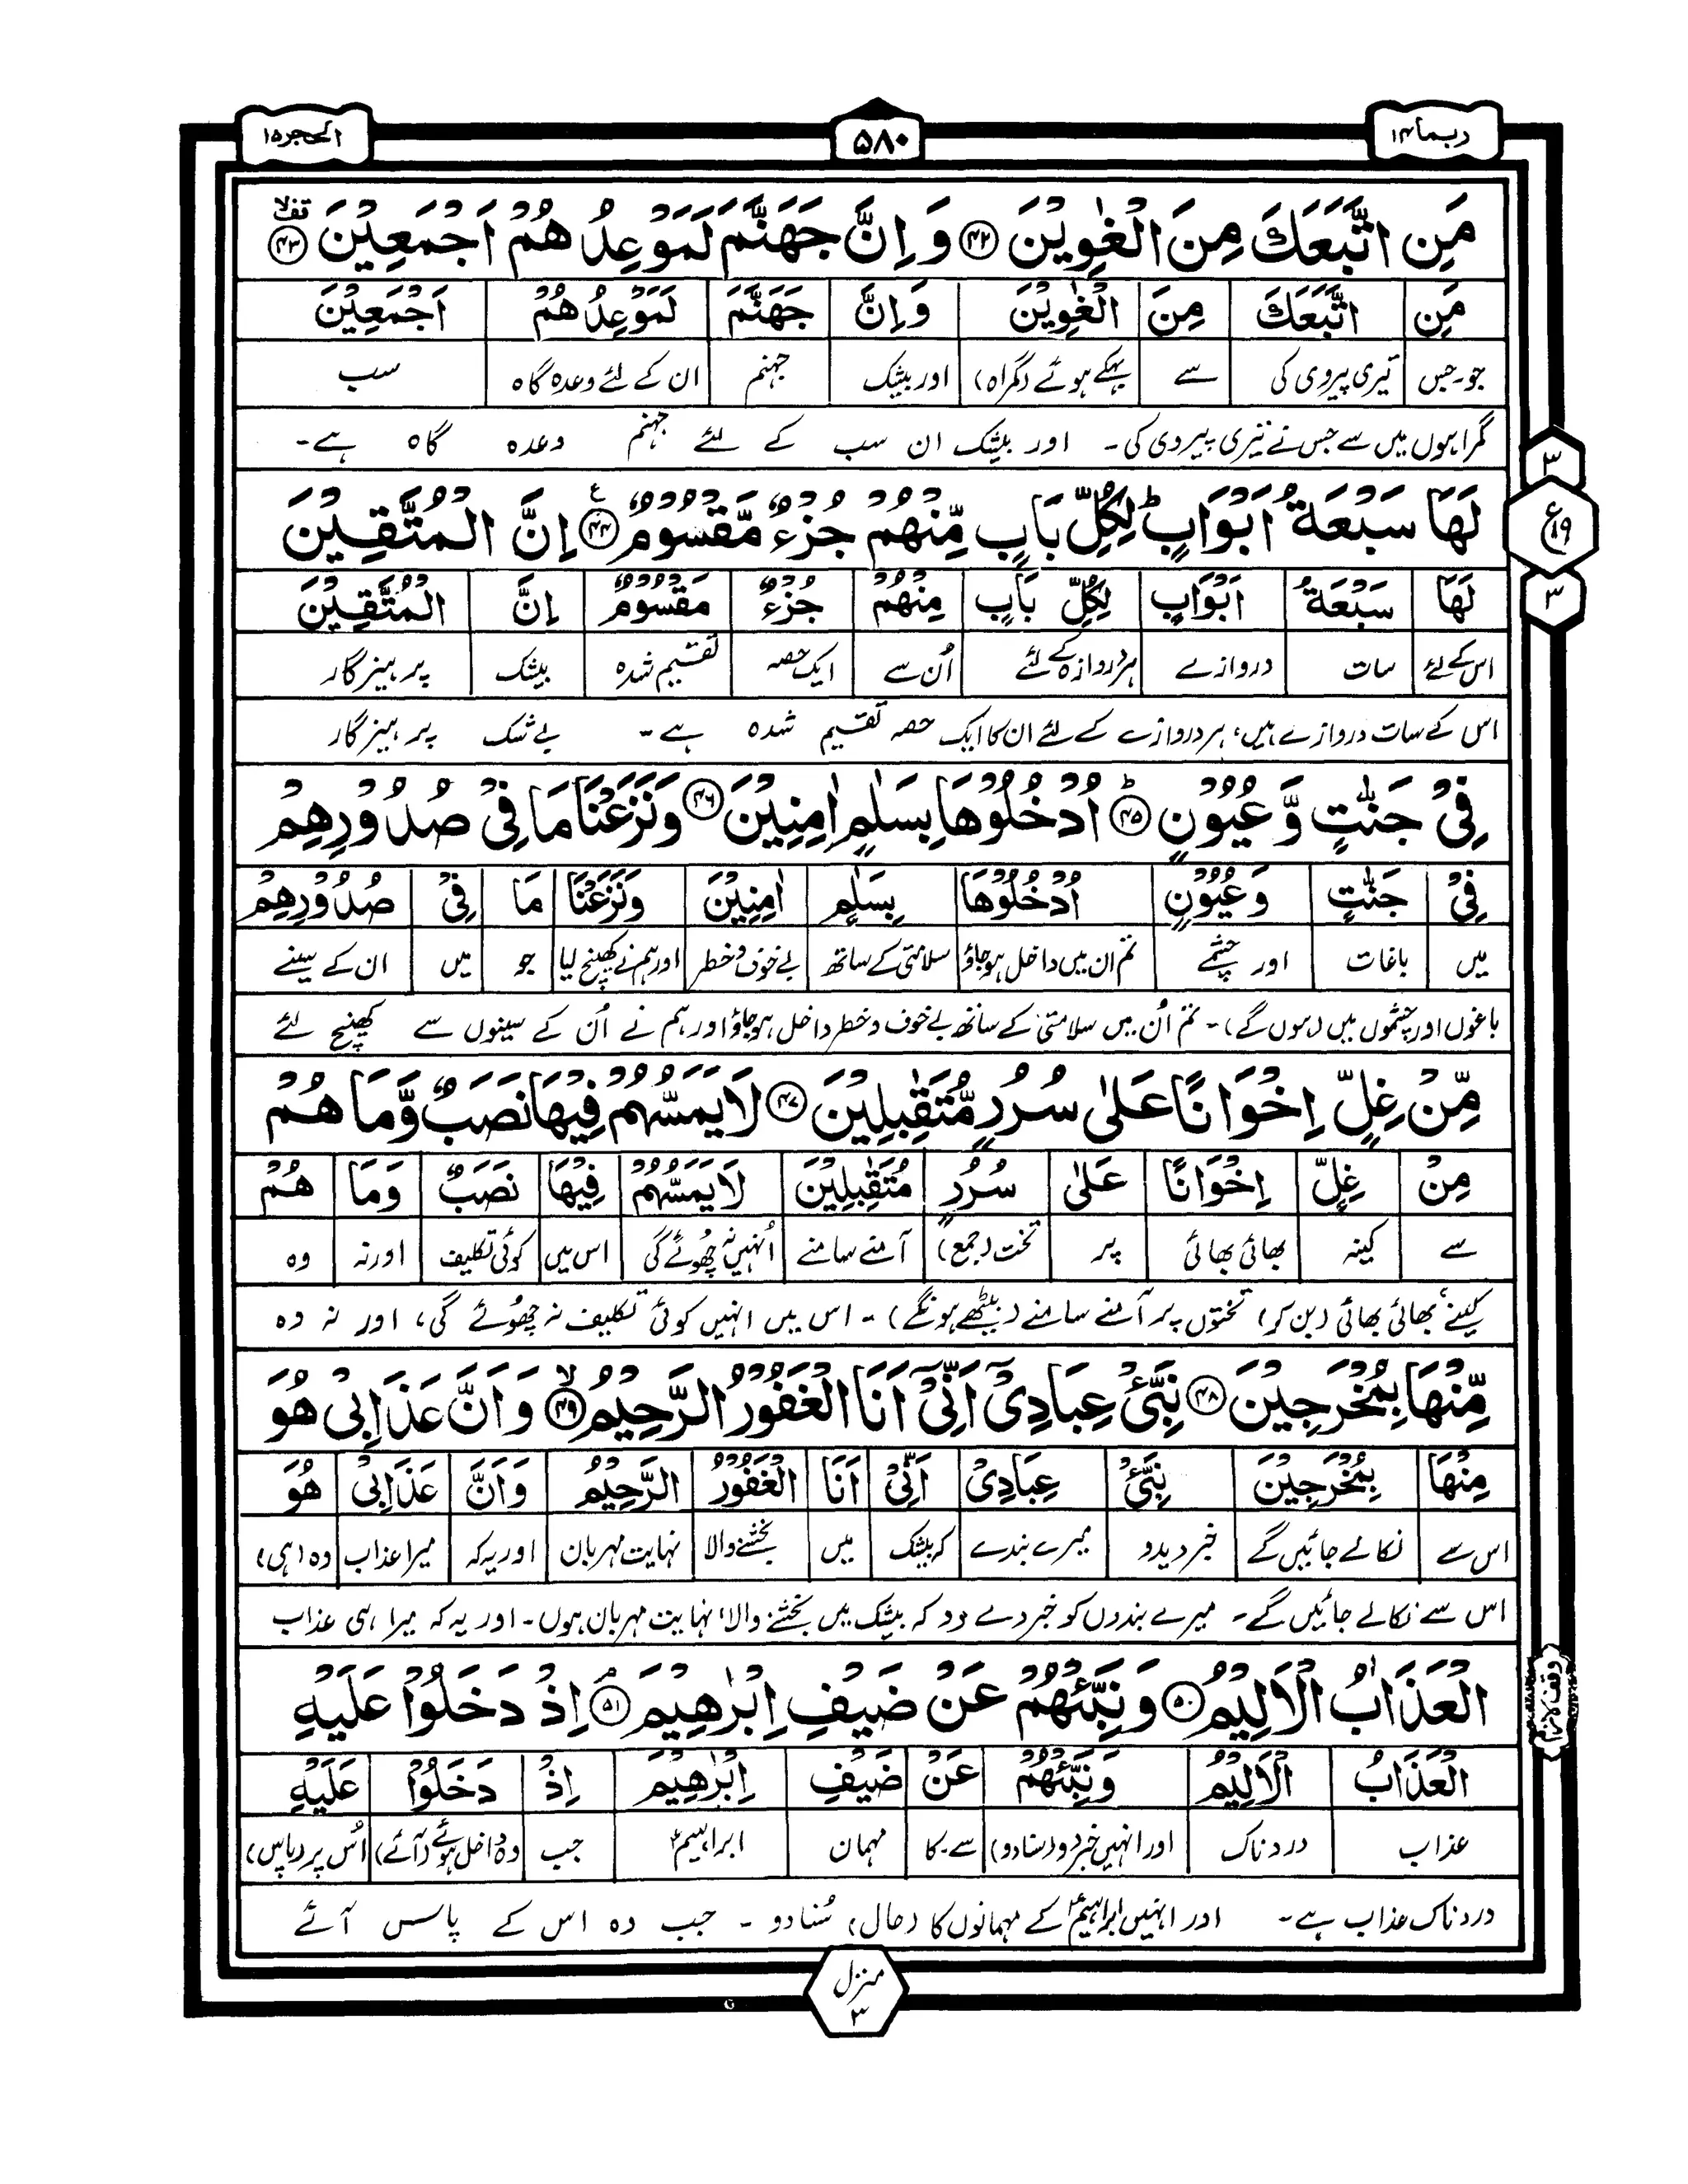 ربما ۱۴
۵۸۰
الحجر ۱۵
مَنِ اتَّبَعَكَ مِنَ الْغٰوِيْنَ ﴿۴۲﴾ وَ اِنَّ جَهَنَّمَ لَمَوْعِدُهُمْ اَجْمَعِيْنَ ﴿۴۳﴾
مَنِ اتَّبَعَكَ مِنَ الْغٰوِيْنَ وَاِنَّ جَهَنَّمَ لَمَوْعِدُهُمْ اَجْمَعِيْنَ
جو۔جس تیری پیروی کی سے بہکے ہوئے (گمراہ) اور بیشک جہنم ان کے لئے وعدہ گاہ سب
گمراہوں میں سے جس نے تیری پیروی کی۔ اور بیشک ان سب کے لئے جہنم وعدہ گاہ ہے۔
لَهَا سَبْعَةُ اَبْوَابٍ ؕ لِكُلِّ بَابٍ مِّنْهُمْ جُزْءٌ مَّقْسُوْمٌ ﴿۴۴﴾ اِنَّ الْمُتَّقِيْنَ
لَهَا سَبْعَةُ اَبْوَابٍ لِكُلِّ بَابٍ مِنْهُمْ جُزْءٌ مَقْسُوْمٌ اِنَّ الْمُتَّقِيْنَ
اس کے لئے سات دروازے ہر دروازہ کے لئے اُن سے ایک حصہ تقسیم شدہ بیشک پرہیزگار
اس کے سات دروازے ہیں، ہر دروازے کے لئے ان کا ایک حصہ تقسیم شدہ ہے۔ بے شک پرہیزگار
فِيْ جَنّٰتٍ وَّ عُيُوْنٍ ﴿۴۵﴾ؕ اُدْخُلُوْهَا بِسَلٰمٍ اٰمِنِيْنَ ﴿۴۶﴾ وَنَزَعْنَا مَا فِيْ صُدُوْرِهِمْ
فِيْ جَنّٰتٍ وَعُيُوْنٍ اُدْخُلُوْهَا بِسَلٰمٍ اٰمِنِيْنَ وَنَزَعْنَا مَا فِيْ صُدُوْرِهِمْ
میں باغات اور چشمے تم ان میں داخل ہو جاؤ سلامتی کے ساتھ بے خوف و خطر اور ہم نے کھینچ لیا جو میں ان کے سینے
باغوں اور چشموں میں (ہوں گے)۔ تم اُن میں سلامتی کے ساتھ بے خوف و خطر داخل ہو جاؤ اور ہم نے اُن کے سینوں سے کھینچ لئے
مِّنْ غِلٍّ اِخْوَانًا عَلٰى سُرُرٍ مُّتَقٰبِلِيْنَ ﴿۴۷﴾ لَا يَمَسُّهُمْ فِيْهَا نَصَبٌ وَّمَا هُمْ
مِنْ غِلٍّ اِخْوَانًا عَلٰى سُرُرٍ مُتَقٰبِلِيْنَ لَا يَمَسُّهُمْ فِيْهَا نَصَبٌ وَمَا هُمْ
سے کینہ بھائی بھائی پر تخت (جمع) آمنے سامنے اُنہیں نہ چھوئے گی اس میں کوئی تکلیف اور نہ وہ
کینے، بھائی بھائی (بن کر) تختوں پر آمنے سامنے (بیٹھے ہونگے)۔ اس میں انہیں کوئی تکلیف نہ چھوئے گی، اور نہ وہ
مِّنْهَا بِمُخْرَجِيْنَ ﴿۴۸﴾ نَبِّئْ عِبَادِيْٓ اَنِّيْٓ اَنَا الْغَفُوْرُ الرَّحِيْمُ ﴿۴۹﴾ۙ وَ اَنَّ عَذَابِيْ هُوَ
مِنْهَا بِمُخْرَجِيْنَ نَبِّئْ عِبَادِيْ اَنِّيْ اَنَا الْغَفُوْرُ الرَّحِيْمُ وَاَنَّ عَذَابِيْ هُوَ
اس سے نکالے جائیں گے خبر دیدو میرے بندے کہ بیشک میں بخشنے والا نہایت مہربان اور یہ کہ میرا عذاب وہ (ہی)
اس سے نکالے جائیں گے۔ میرے بندوں کو خبر دے دو کہ بیشک میں بخشنے والا، نہایت مہربان ہوں۔ اور یہ کہ میرا ہی عذاب
الْعَذَابُ الْاَلِيْمُ ﴿۵۰﴾ وَ نَبِّئْهُمْ عَنْ ضَيْفِ اِبْرٰهِيْمَ ﴿۵۱﴾ۘ اِذْ دَخَلُوْا عَلَيْهِ
الْعَذَابُ الْاَلِيْمُ وَنَبِّئْهُمْ عَنْ ضَيْفِ اِبْرٰهِيْمَ اِذْ دَخَلُوْا عَلَيْهِ
عذاب دردناک اور انہیں خبر دو (سنا دو) سے۔ کا مہمان ابراہیمؑ جب وہ داخل ہوئے (آئے) اُس پر (پاس)
دردناک عذاب ہے۔ اور انہیں ابراہیمؑ کے مہمانوں کا (حال) سُنا دو۔ جب وہ اس کے پاس آئے
۳
ع ۱۹
۳
وقف لازم
منزل
۳